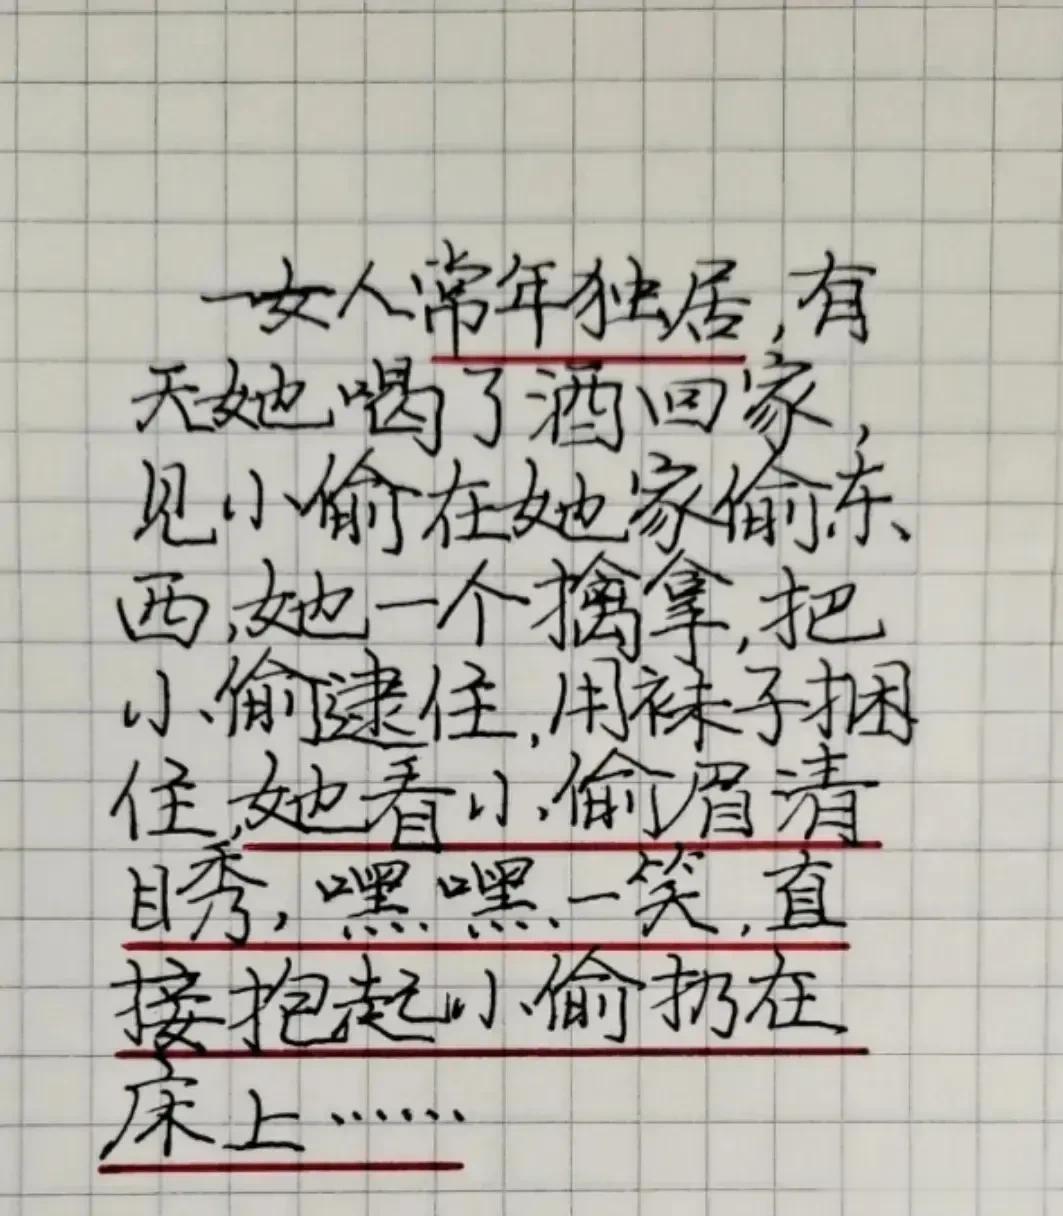 一女人常年独居,有
天她喝了酒回家,
见小偷在她家偷东
西,她一个擒拿,把
小偷逮住,用袜子捆
住,她看小偷眉清
目秀,嘿嘿一笑,直
接抱起小偷扔在
床上……